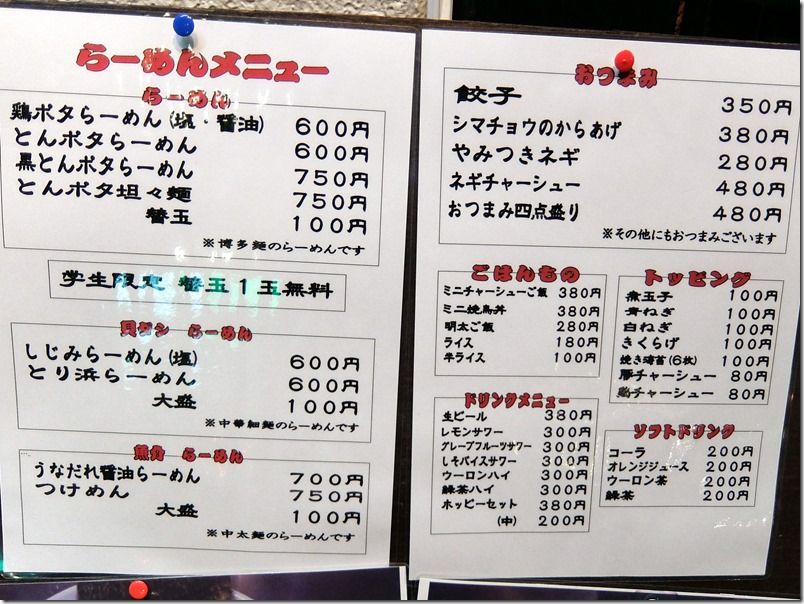 らーめんメニュー
らーめん
鶏ポタらーめん(塩・醤油) 600円
とんポタらーめん 600円
黒とんポタらーめん 750円
とんポタ坦々麺 750円
替玉 100円
※博多麺のらーめんです
学生限定 替玉1玉無料
貝ダシ らーめん
しじみらーめん(塩) 600円
とり浜らーめん 600円
大盛 100円
※中華細麺のらーめんです
らーめん
うなだれ醤油らーめん 700円
つけめん 750円
大盛 100円
※中太麺のらーめんです
おつまみ
餃子 350円
シマチョウのからあげ 380円
やみつきネギ 280円
ネギチャーシュー 480円
おつまみ四点盛り 480円
※その他にもおつまみございます
ごはんもの
ミニチャーシューご飯 380円
ミニ焼鳥丼 380円
明太ご飯 280円
ライス 180円
半ライス 100円
トッピング
煮玉子 100円
青ねぎ 100円
白ねぎ 100円
きくらげ 100円
焼き海苔(6枚) 100円
豚チャーシュー 80円
鶏チャーシュー 80円
ドリンクメニュー
生ビール 380円
レモンサワー 300円
グレープフルーツサワー 300円
しそバイスサワー 300円
ウーロンハイ 300円
緑茶ハイ 300円
ホッピーセット 380円
(中) 200円
ソフトドリンク
コーラ 200円
オレンジジュース 200円
ウーロン茶 200円
緑茶 200円